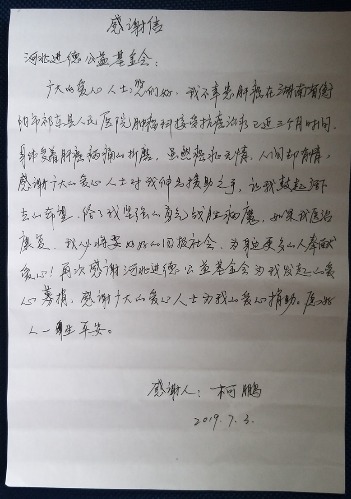 感谢信
河北进德公益基金会：
广大的爱心人士您们好，我不幸患肝癌在湖南省衡
阳市祁东县人民医院肿瘤科接受抗癌治疗已近三个月时间，
身体受着肝癌病痛的折磨，虽然癌症无情，人间却有情，
感谢广大的爱心人士对我伸出援助之手，让我鼓起活下
去的希望，给了我坚强的勇气战胜病魔，如果我医治
康复，我必将要好好的回报社会，为身边更多的人奉献
爱心！再次感谢河北进德公益基金会为我发起的爱
心募捐，感谢广大的爱心人士为我的爱心捐助。愿好
人一生平安。
感谢人：柯鹏
2019.7.3.